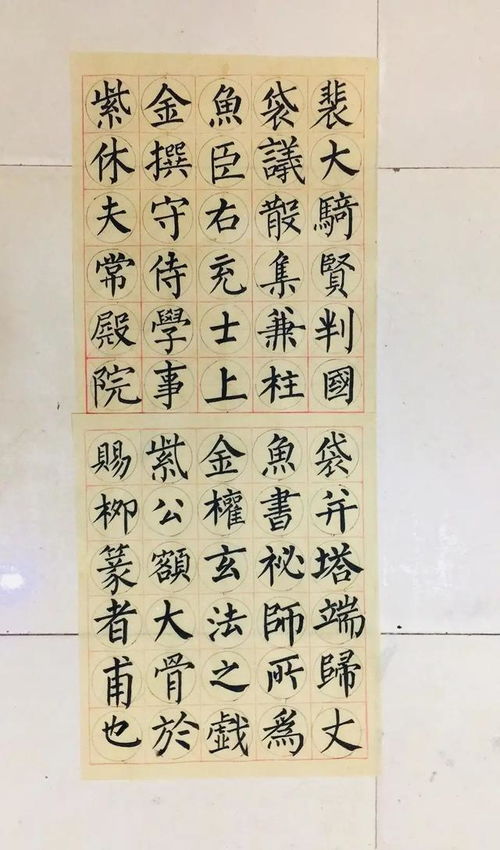 紫金魚袋裴
休撰臣議大
夫守右散騎
常侍充集賢
殿學士兼判
院事上柱國
賜紫金魚袋
柳公權書并
篆額玄祕塔
者大法師端
甫骨之所歸
也於戲為丈